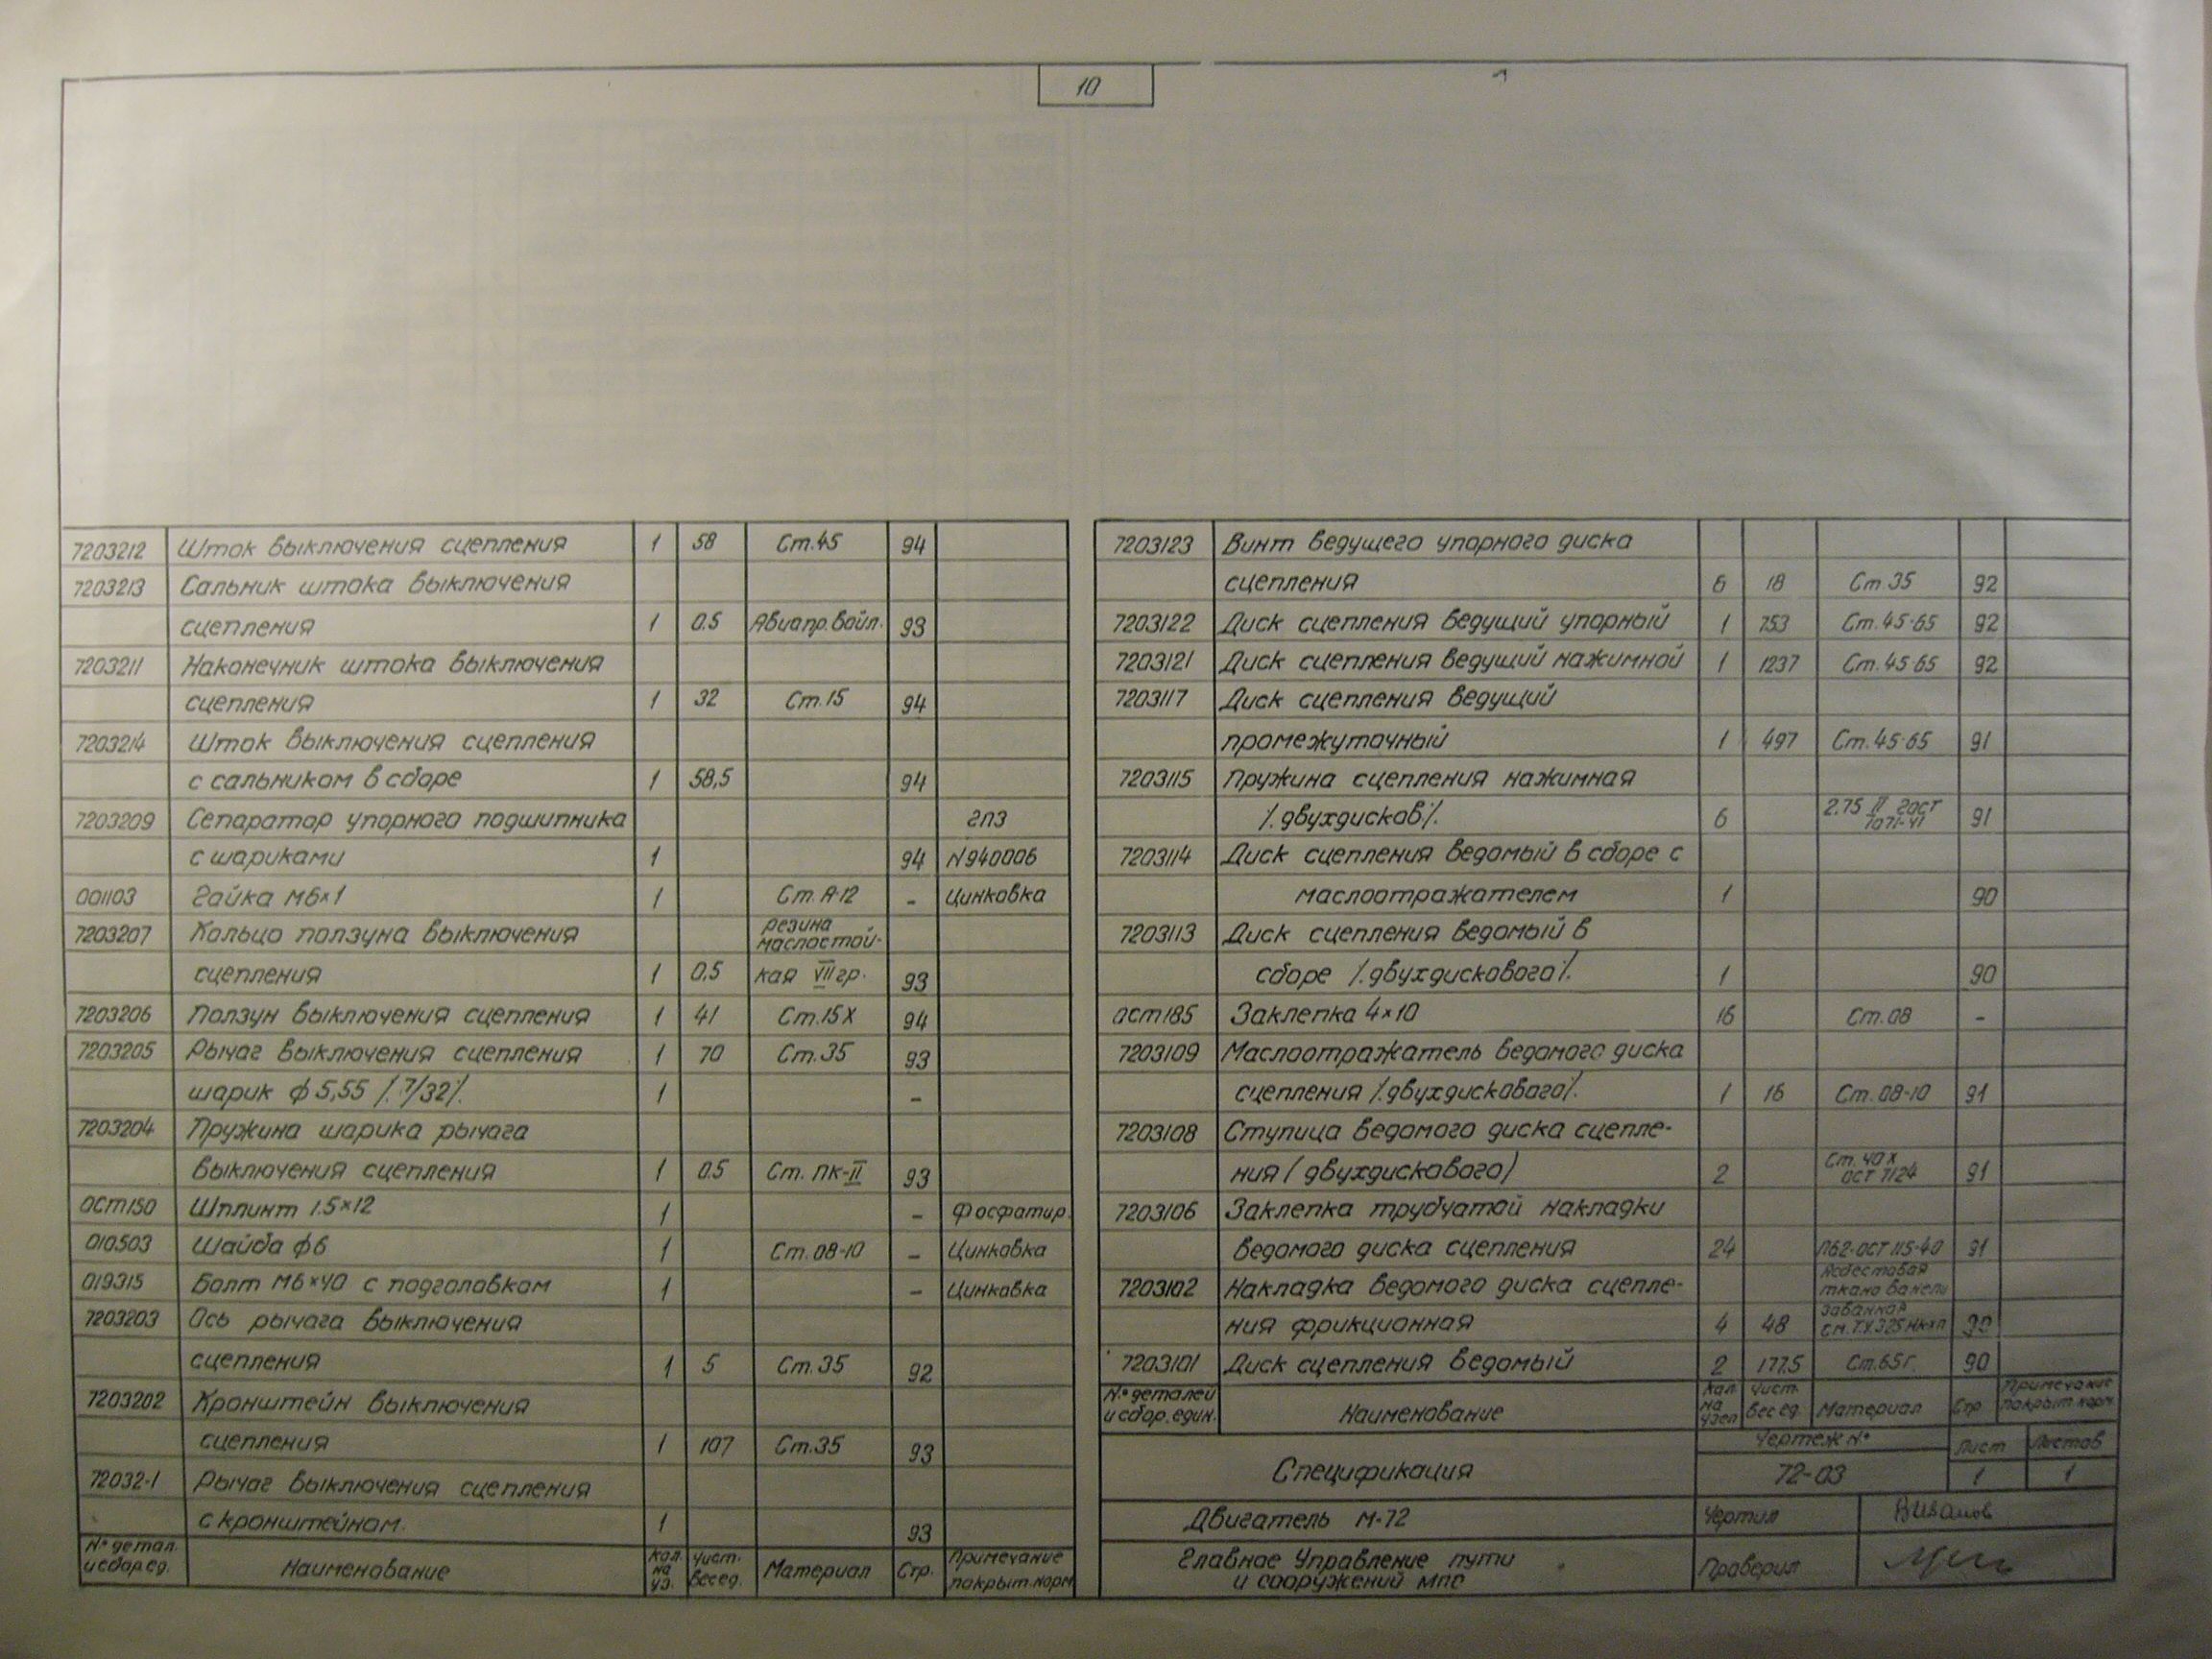 10
7203212 Шток выключения сцепления 1 58 Ст.45 94
7203213 Сальник штока выключения
сцепления 1 0.5 Авиапр.войл. 93
7203211 Наконечник штока выключения
сцепления 1 32 Ст.15 94
7203214 Шток выключения сцепления
с сальником в сборе 1 58,5 94
7203209 Сепаратор упорного подшипника ГПЗ
с шариками 1 94 N940006
001103 Гайка М6×1 1 Ст.А-12 – Цинковка
7203207 Кольцо ползуна выключения резина маслостой-
сцепления 1 0,5 кая VII гр. 93
7203206 Ползун выключения сцепления 1 41 Ст.15Х 94
7203205 Рычаг выключения сцепления 1 70 Ст.35 93
шарик ф 5,55 /.7/32/. 1 –
7203204 Пружина шарика рычага
выключения сцепления 1 0.5 Ст. ПК-II 93
ОСТ150 Шплинт 1.5×12 1 – Фосфатир.
010503 Шайба ф6 1 Ст.08-10 – Цинковка
019315 Болт М6×40 с подголовком 1 – Цинковка
7203203 Ось рычага выключения
сцепления 1 5 Ст.35 92
7203202 Кронштейн выключения
сцепления 1 107 Ст.35 93
72032-1 Рычаг выключения сцепления
с кронштейном. 1 93
№ детал. и сбор ед. Наименование Кол. на уз. Чист. вес ед. Материал Стр. Примечание покрыт. норм
7203123 Винт ведущего упорного диска
сцепления 6 18 Ст.35 92
7203122 Диск сцепления ведущий упорный 1 753 Ст.45-65 92
7203121 Диск сцепления ведущий нажимной 1 1237 Ст.45-65 92
7203117 Диск сцепления ведущий
промежуточный 1 497 Ст.45-65 91
7203115 Пружина сцепления нажимная
/.двухдисков/. 6 2.75 II ГОСТ 1071-41 91
7203114 Диск сцепления ведомый в сборе с
маслоотражателем 1 90
7203113 Диск сцепления ведомый в
сборе /.двухдискового/. 1 90
ОСТ185 Заклепка 4×10 16 Ст.08 –
7203109 Маслоотражатель ведомого диска
сцепления /.двухдискового/. 1 16 Ст.08-10 91
7203108 Ступица ведомого диска сцепле-
ния (двухдискового) 2 Ст.40х ОСТ 7124 91
7203106 Заклепка трубчатой накладки
ведомого диска сцепления 24 Л62-ОСТ 115-40 91
7203102 Накладка ведомого диска сцепле- Асбестовая
ния фрикционная 4 48 см.Т.У.325 90
7203101 Диск сцепления ведомый 2 177.5 Ст.65Г. 90
№ деталей и сбор. един. Наименование Кол. на узел Чист. вес ед. Материал Стр. Примечание покрыт. норм.
Спецификация Чертеж № 72-03 Лист 1 Листов 1
Двигатель М-72 Чертил ВИванов
Главное Управление пути Проверил
и сооружений МПС